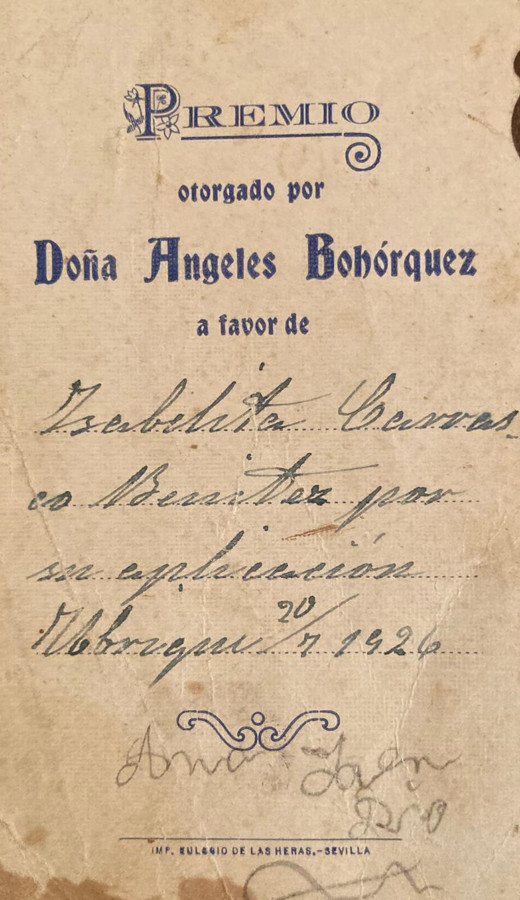 PREMIO
otorgado por
Doña Angeles Bohórquez
a favor de
Isabelita Carras-
co Benitez por
su aplicación
Ubrique 20/7 1926
Ana Jaen
IMP. EULOGIO DE LAS HERAS.-SEVILLA